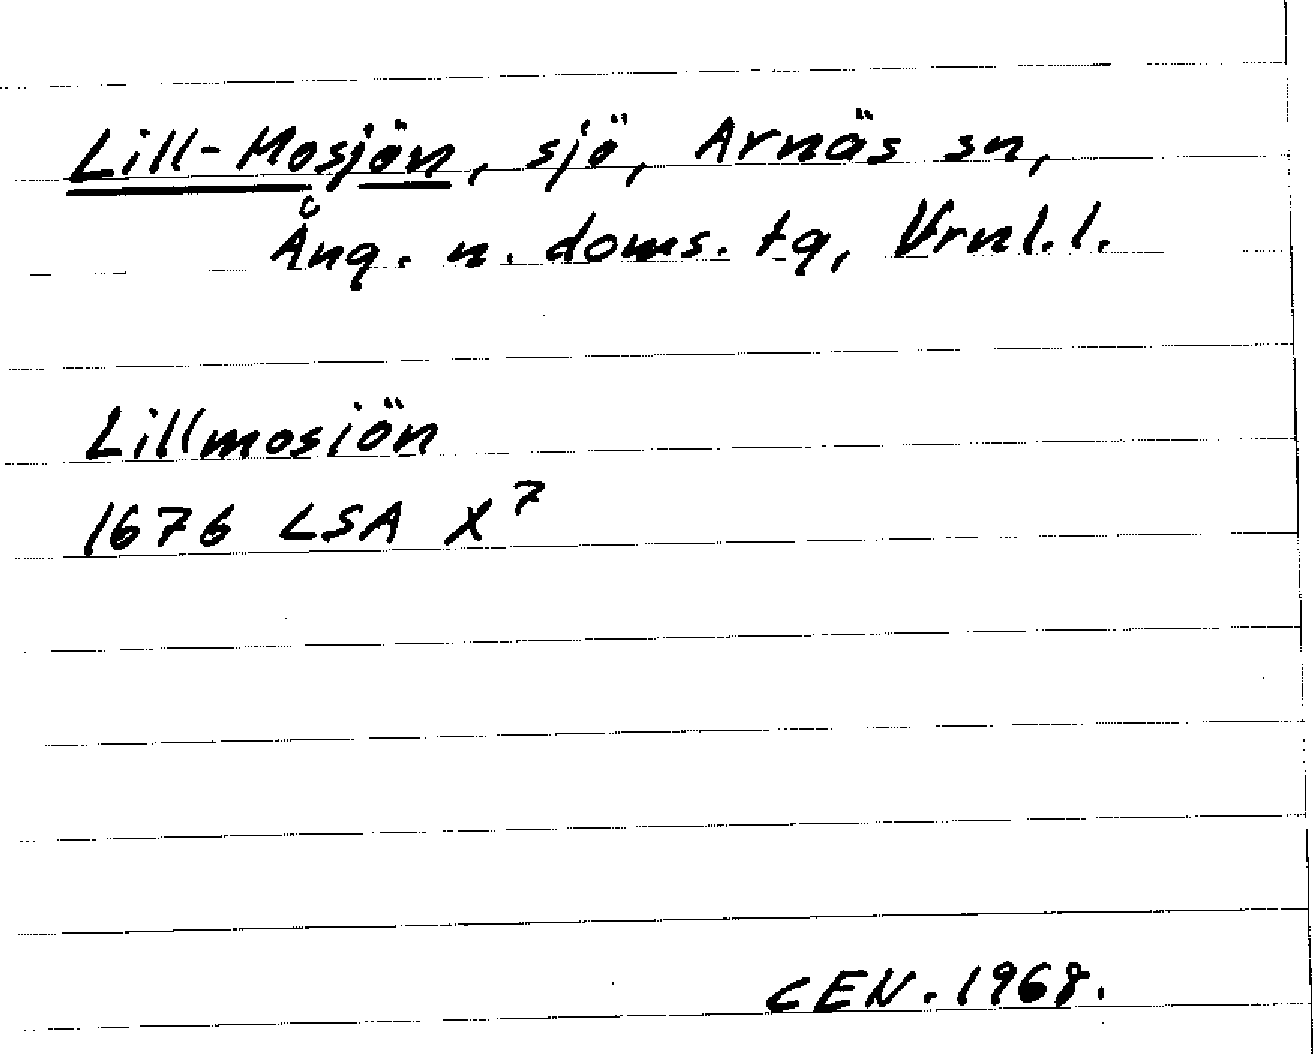 Lill-Mosjön, sjö, Arnäs sn,
Ång. n. doms. tg, Vrnl. l.
Lillmosiön
1676 LSA X⁷
CEN. 1968.